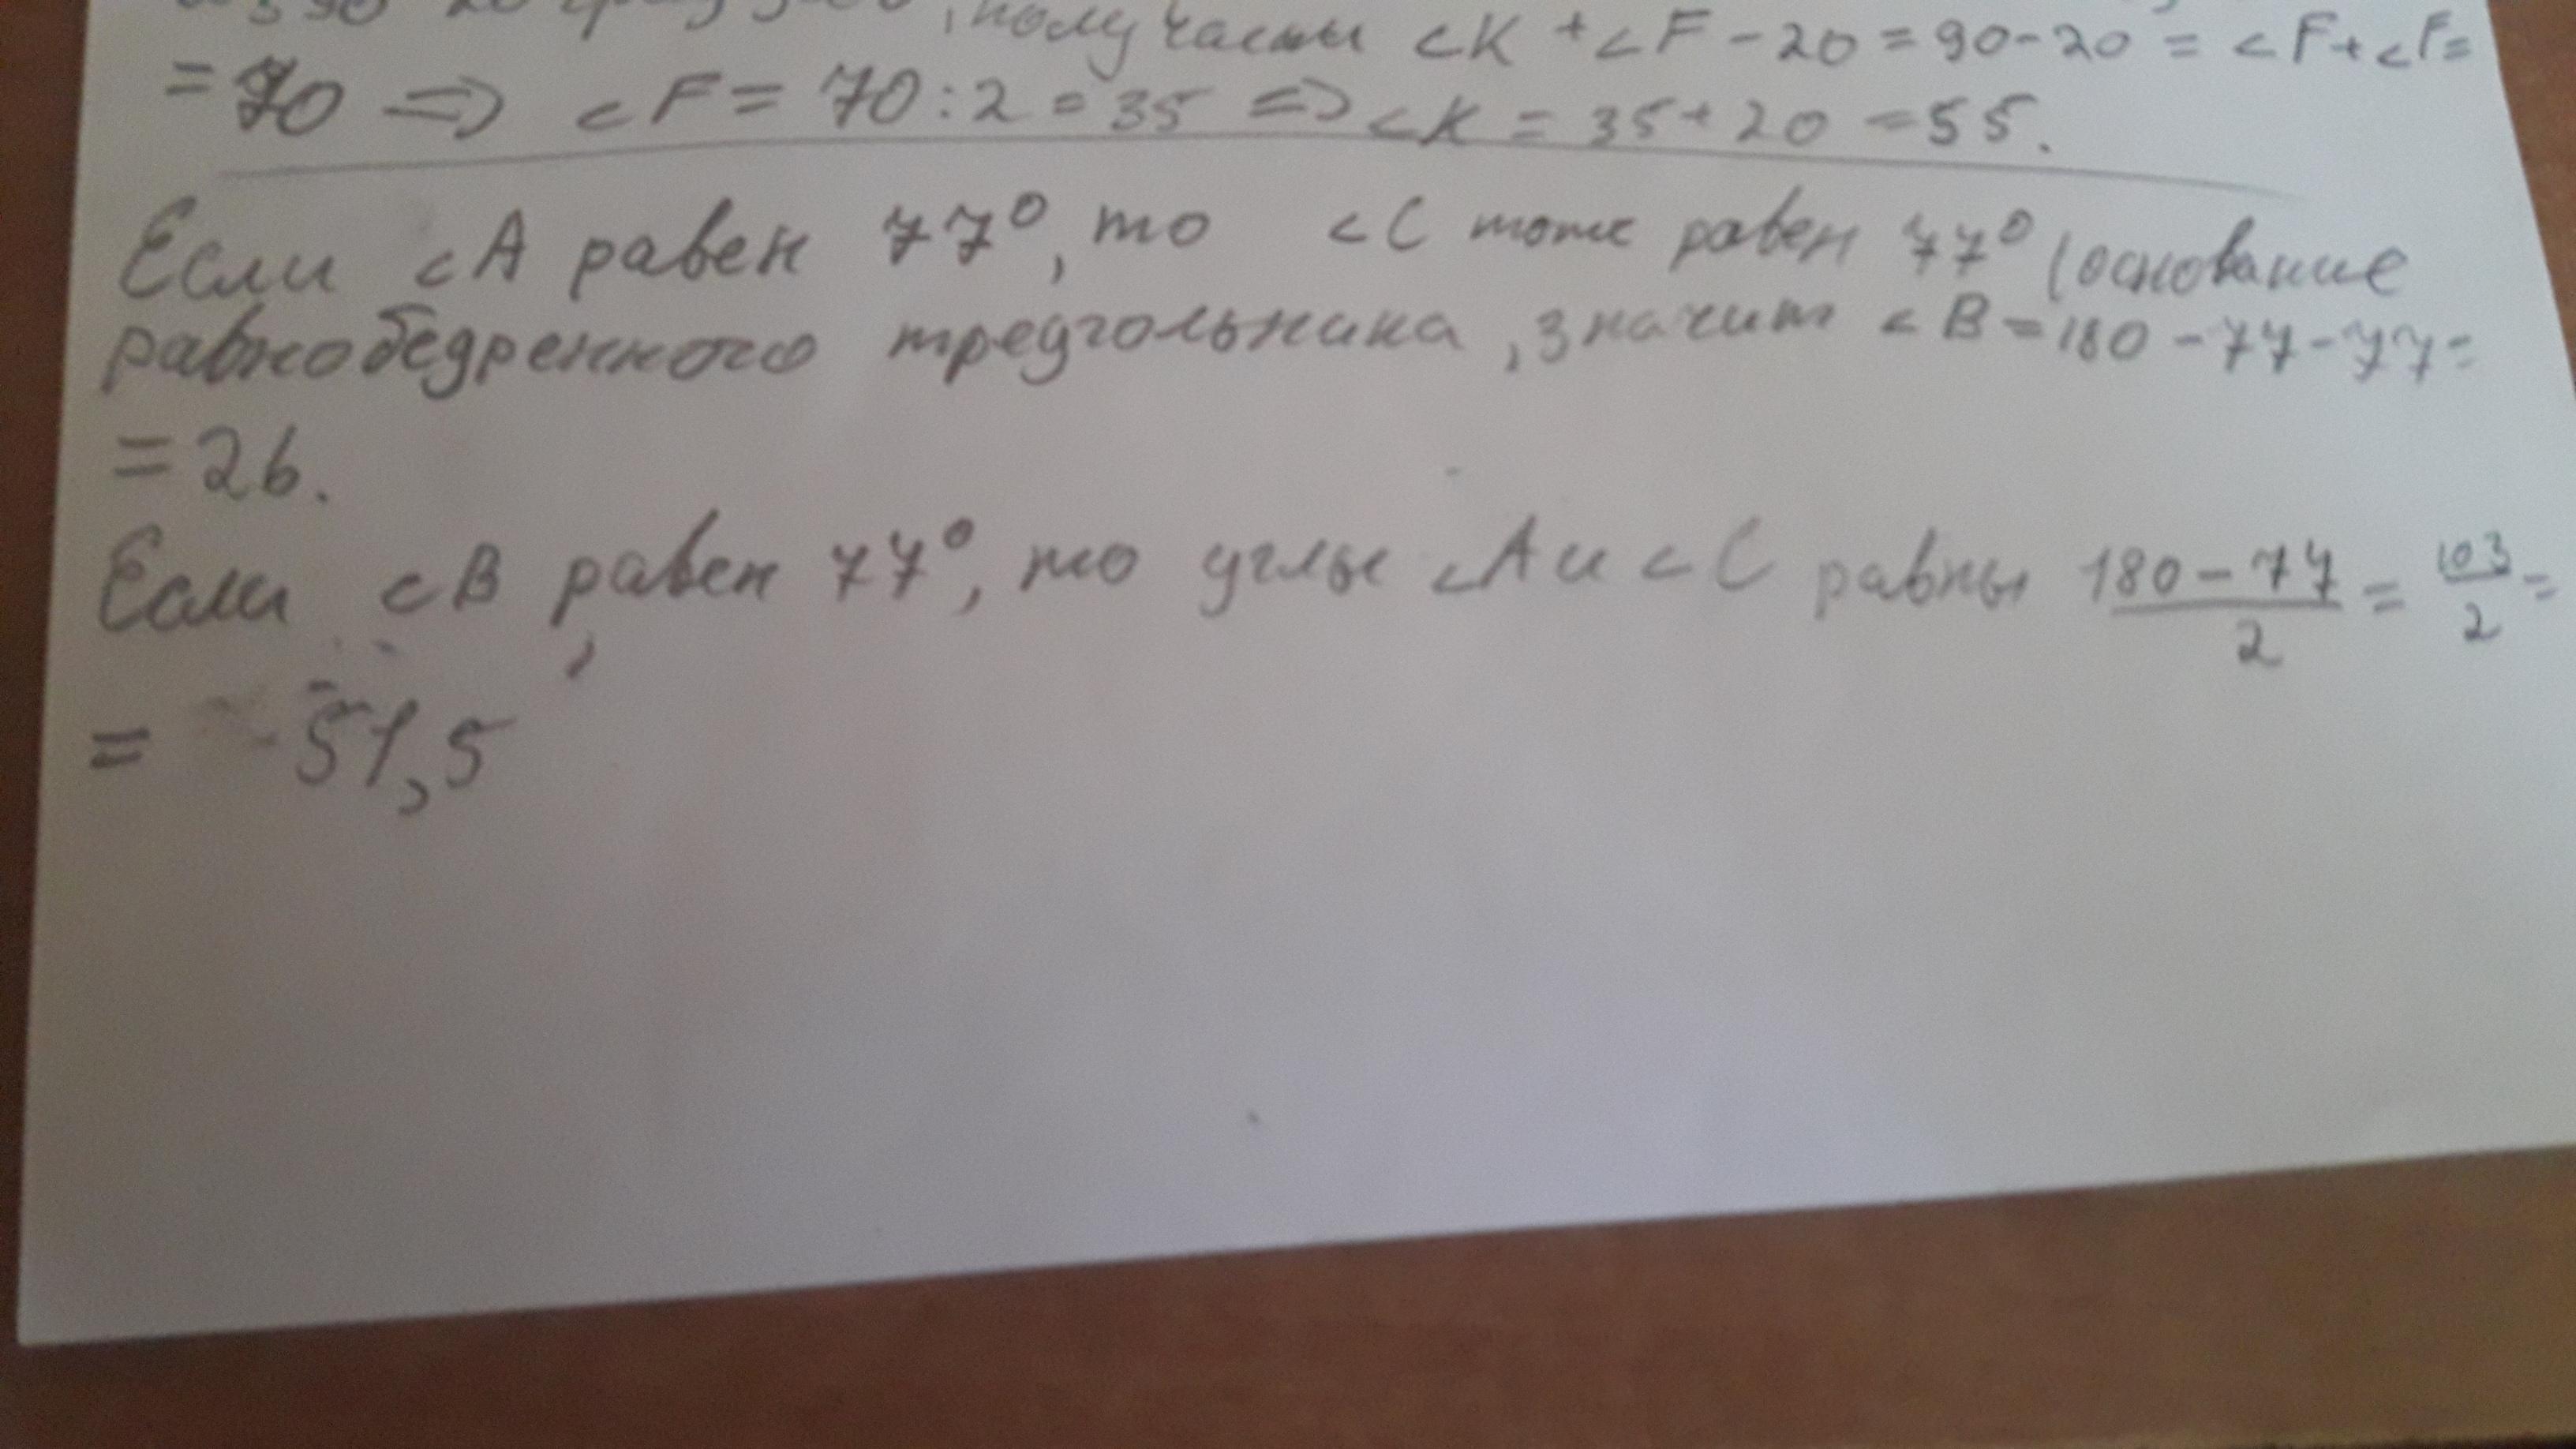 , получаем <K + <F - 20 = 90 - 20 = <F + <F =
= 70 => <F = 70 : 2 = 35 => <K = 35 + 20 = 55.
Если <A равен 77°, то <C тоже равен 77° (основание
равнобедренного треугольника, значит <B = 180 - 77 - 77 =
= 26.
Если <B равен 77°, то углы <A и <C равны 180 - 77 / 2 = 103 / 2 =
= 51,5